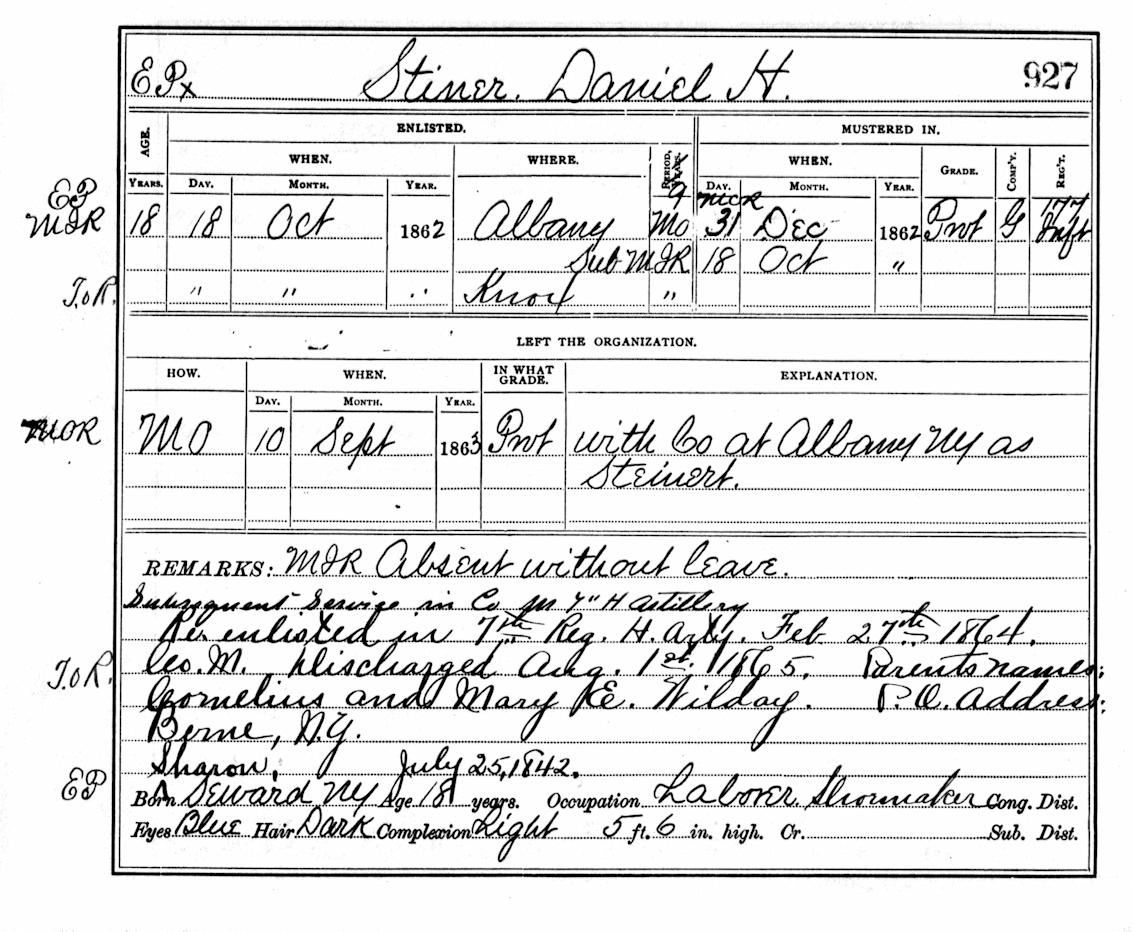 EPx Stiner. Daniel H. 927
AGE. ENLISTED. MUSTERED IN.
WHEN. WHERE. PERIOD, YEARS. WHEN. GRADE. COMP'Y. REG'T.
YEARS. DAY. MONTH. YEAR. DAY. MONTH. YEAR.
EP 9 MCR 177
MIR 18 18 Oct 1862 Albany Mo 31 Dec 1862 Pvt G Inft
Sub MIR 18 Oct "
T.o.R. " " " Knox "
LEFT THE ORGANIZATION.
HOW. WHEN. IN WHAT GRADE. EXPLANATION.
DAY. MONTH. YEAR.
MOR MO 10 Sept 1863 Pvt with Co at Albany NY as
Steinert.
REMARKS: MIR Absent without leave.
Subsequent Service in Co M 7" H Artillery
Re enlisted in 7th Reg. H. Arty. Feb 27th 1864.
T.o.R. Co. M. Discharged Aug. 1st. 1865. Parents names:
Cornelius and Mary E. Wilday. P.O. Address:
Berne, N.Y.
Sharon, July 25, 1842.
EP Born Seward NY Age 18 years. Occupation Laborer Shoemaker Cong. Dist.
Eyes Blue Hair Dark Complexion Light 5 ft. 6 in. high. Cr. Sub. Dist.